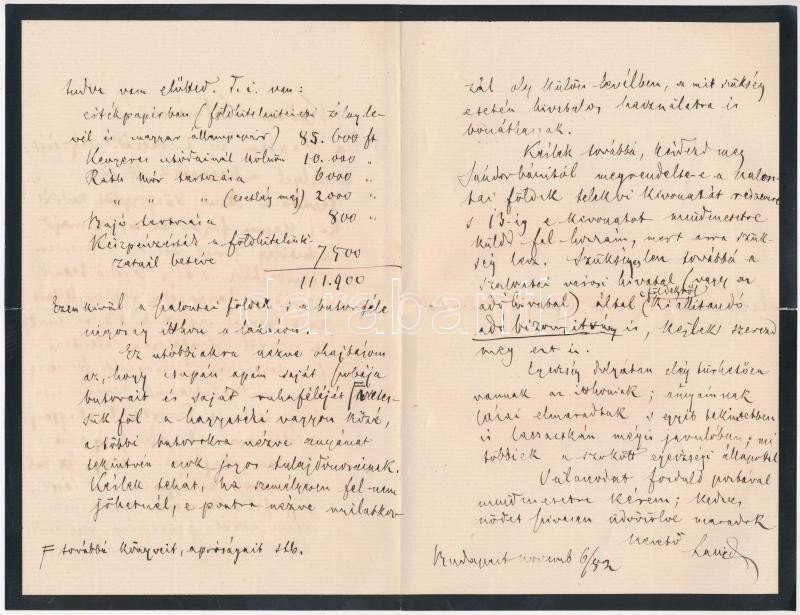 tudva van előtted. T. i. van:
értékpapirban (földhitelintézeti záloglevél és magyar állampapir) 85.600 ft
Kenyeres utódainál kölcsön 10.000 "
Ráth Mór tartozása 6000 "
" " " (esetleg még) 2000 "
Bajó tartozása 800 "
Készpénzérték a földhitelintézetnél betéve 7500
111.900
Ezenkivül a szalontai földek s a butorféle
ingóság itthon a lakáson.
Ez utóbbiakra nézve ohajtásom
az, hogy csupán apám saját szobája
butorait és saját ruhaféléjét F vetessük
föl a hagyatéki vagyon közé,
a többi butorokra nézve anyámat
tekintvén azok jogos tulajdonosának.
Kérlek tehát, ha személyesen fel nem
jöhetnél, e pontra nézve nyilatkoz-
F továbbá könyveit, apróságait stb.
zál oly külön levélben, a mit szükség
esetén hivatalos használatra is
bocsáthassak.
Kérlek továbbá, kérdezd meg
Sándor bácsitól megrendelte-e a szalontai
földek telekvi kivonatát
s 13-ig a kivonatot mindenesetre
küldd fel hozzám, mert arra szükség
lesz. Szükséges lesz továbbá a
szalontai városi hivatal (vagy az
adóhivatal) által a földekről kiállitandó
adóbizonyitvány is, kérlek szerezd
meg ezt is.
Egészség dolgában elég tűrhetően
vannak az itthoniak; anyámnak
lázai elmaradtak s egyéb tekintetben
is lassacskán mégis javulóban; mi
többiek a szokott egészségi állapottal.
Válaszodat forduló postával
mindenesetre kérem; kedves
nődet szivesen üdvözölve maradok
szerető
Laczid
Budapest novemb 6/82
darabanth